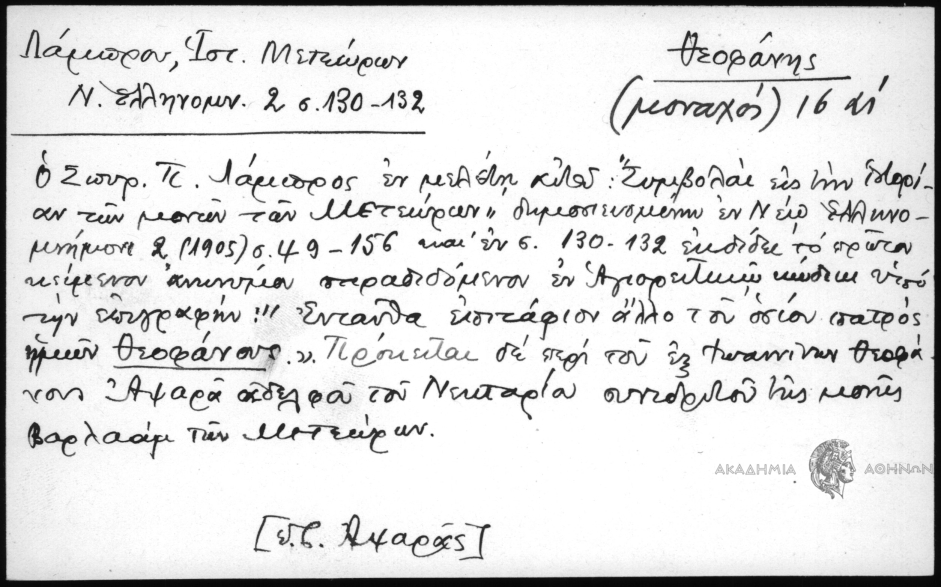 Λάμπρου, Ἱστ. Μετεώρων
Θεοφάνης
Ν. Ἑλληνομν. 2 σ. 130-132
(μοναχός) 16 αἰ
Ὁ Σπυρ. Π. Λάμπρος ἐν μελέτῃ αὐτοῦ: "Συμβολαὶ εἰς τὴν ἱστορί-
αν τῶν μονῶν τῶν Μετεώρων" δημοσιευομένῃ ἐν Νέῳ Ἑλληνο-
μνήμονι 2 (1905) σ. 49-156 καὶ ἐν σ. 130-132 ἐκδίδει τὸ πρῶτον
κείμενον παραδιδόμενον ἐν Ἁγιορειτικῷ κώδικι ὑπό
τὴν ἐπιγραφήν: "Ἐνταῦθα ἐπιτάφιον ἄλλο τοῦ ὁσίου πατρὸς
ἡμῶν Θεοφάνους". Πρόκειται δέ περὶ τοῦ ἐξ Ἰωαννίνων Θεοφά-
νους Ἀψαρᾶ ἀδελφοῦ τοῦ Νεκταρίου τῆς μονῆς
Βαρλαὰμ τῶν Μετεώρων.
ΑΚΑΔΗΜΙΑ ΑΘΗΝΩΝ
Ἀψαρᾶς]